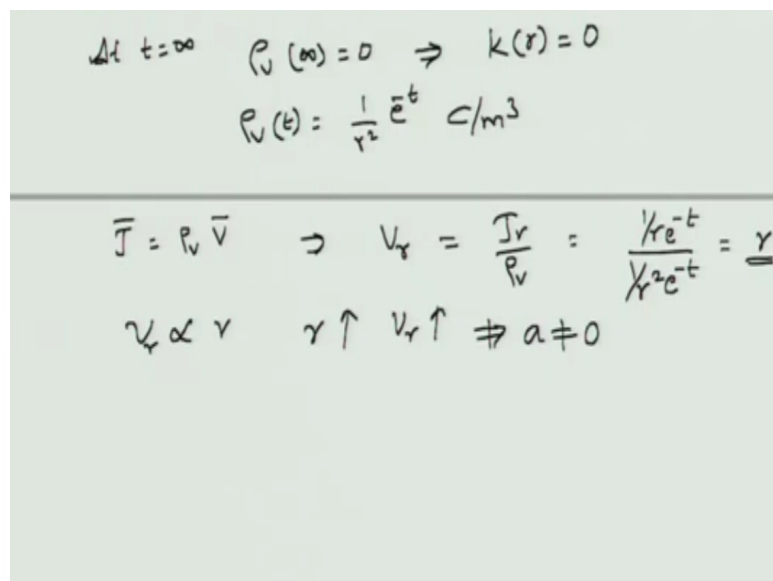 At t=∞ ρᵥ(∞) = 0 ⇒ k(r) = 0
ρᵥ(t) = 1/r² e^-t C/m³
J̅ = ρᵥ V̅ ⇒ Vᵣ = Jᵣ/ρᵥ = (1/r e^-t)/(1/r² e^-t) = r
Vᵣ ∝ r r↑ Vᵣ↑ ⇒ a ≠ 0